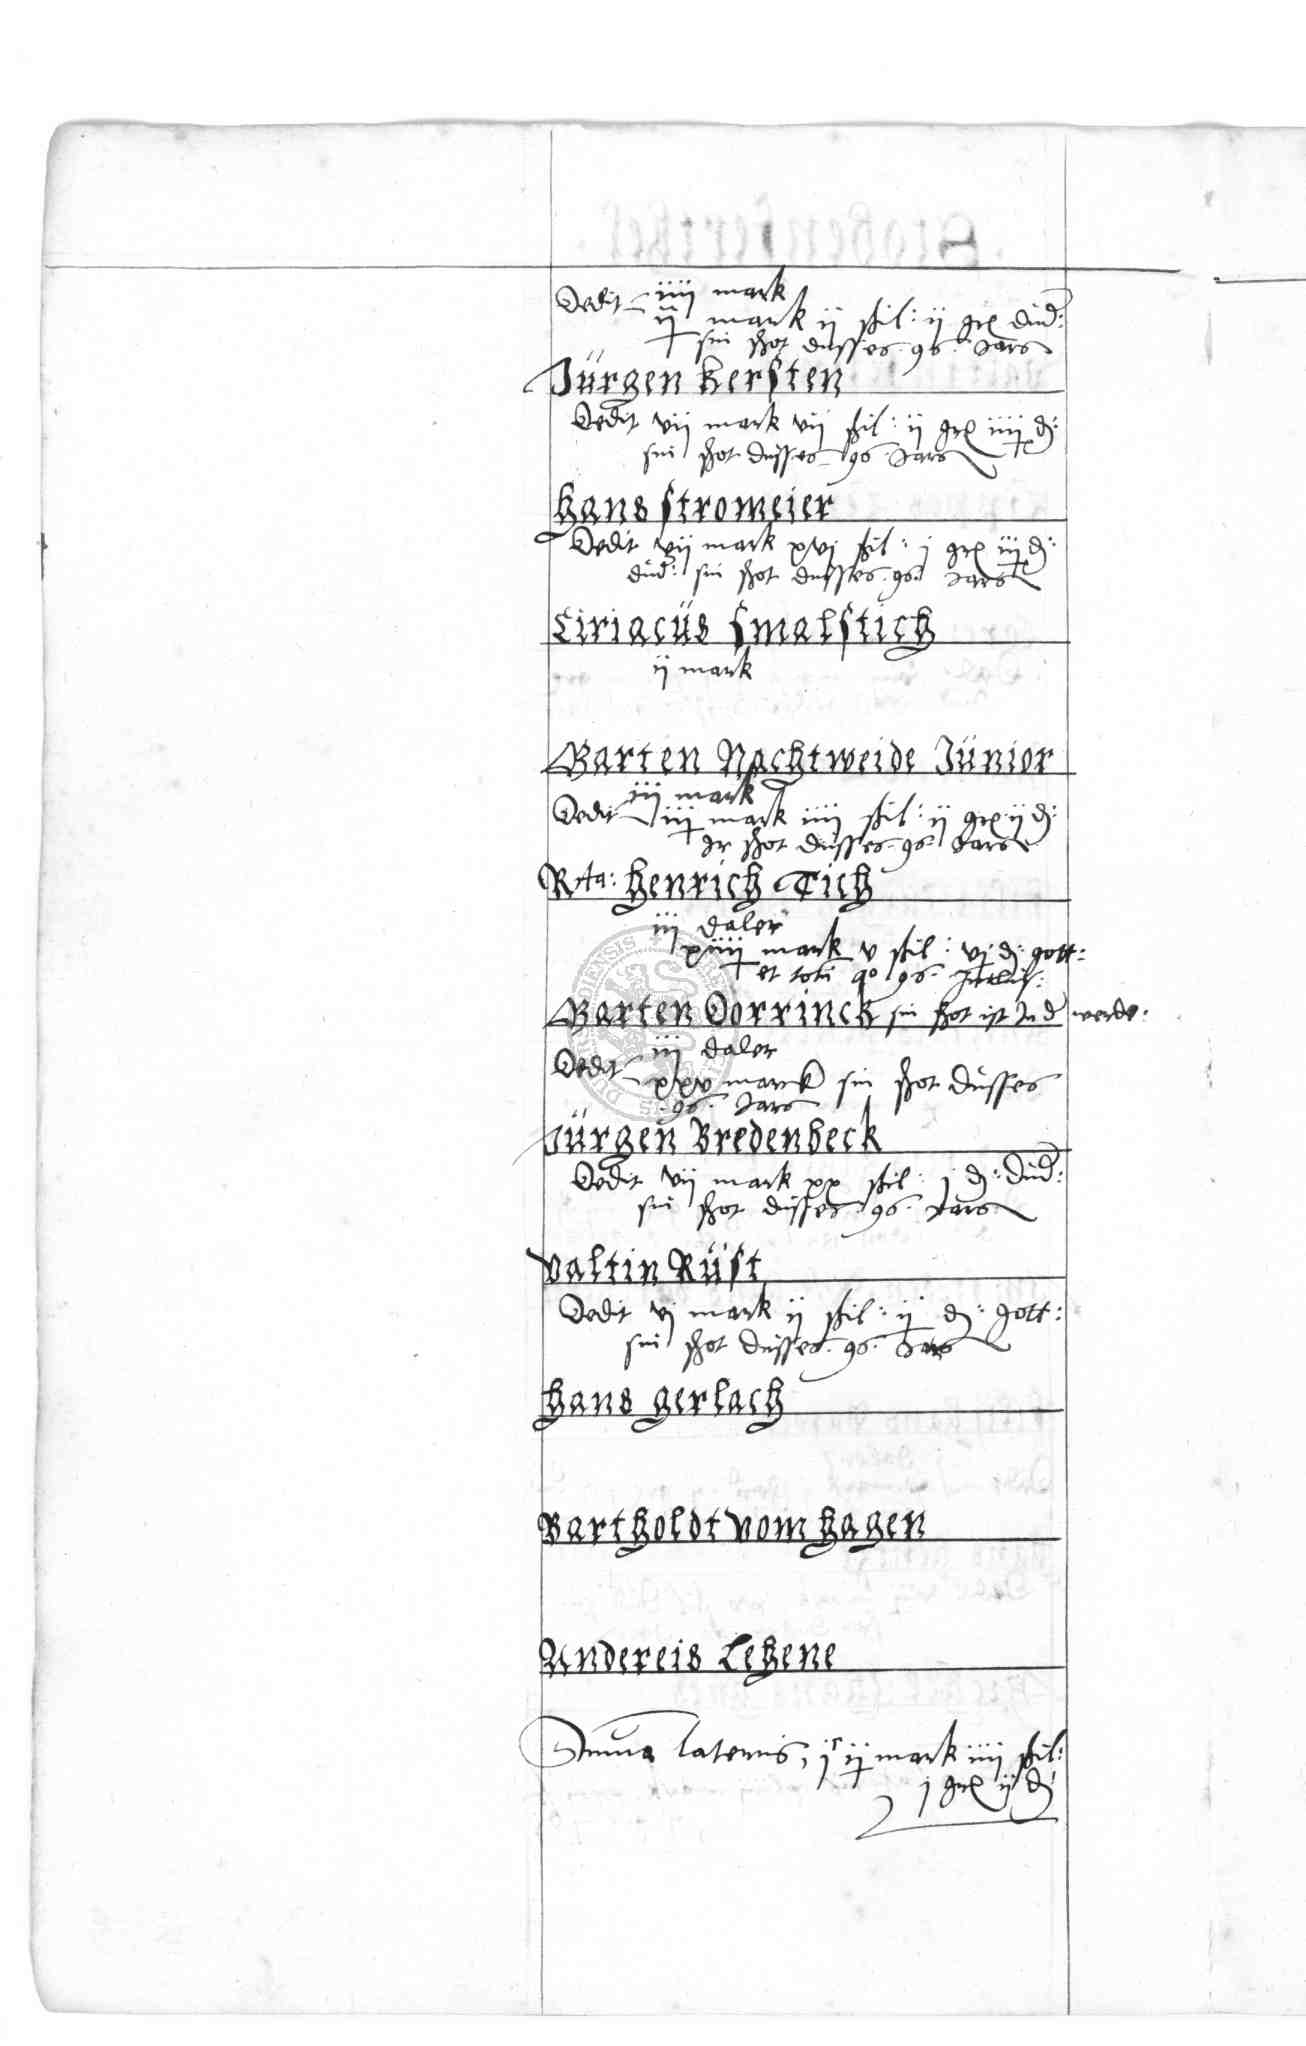 Dedit iiij mark
ij mark ij ßil: ij gr dud:
sin shot dusses 96 Jars
Jürgen Kersten
Dedit vij mark vij ßil: ij gr iiij d:
sin shot dusses 96 Jars
Hans Stromeier
Dedit vij mark xvj ßil: j gr iij d:
dud: sin shot dusses 96 Jars
Ciriacüs Smalstich
ij mark
Barten Nachtweide Jünior
iij mark
Dedit iij mark iiij ßil: ij gr ij d:
Jr shot dusses 96 Jars
Rta: Henrich Tich
iij daler
xiiij mark v ßil: vj d: gott:
et toti 96
Barten Dorrinck sin shot ist Jnd werde:
iij daler
Dedit xxv mark sin shot dusses
96 Jars
Jürgen Bredenbeck
Dedit vij mark xx ßil: j d: dud:
sin shot dusses 96 Jars
Valtin Rüst
Dedit vj mark ij ßil: ij d: gott:
sin shot dusses 96 Jars
Hans Gerlach
Bartholdt vom Hagen
Andereis Lehene
Summa lateris, jc ij mark iiij ßil:
j gr ij d